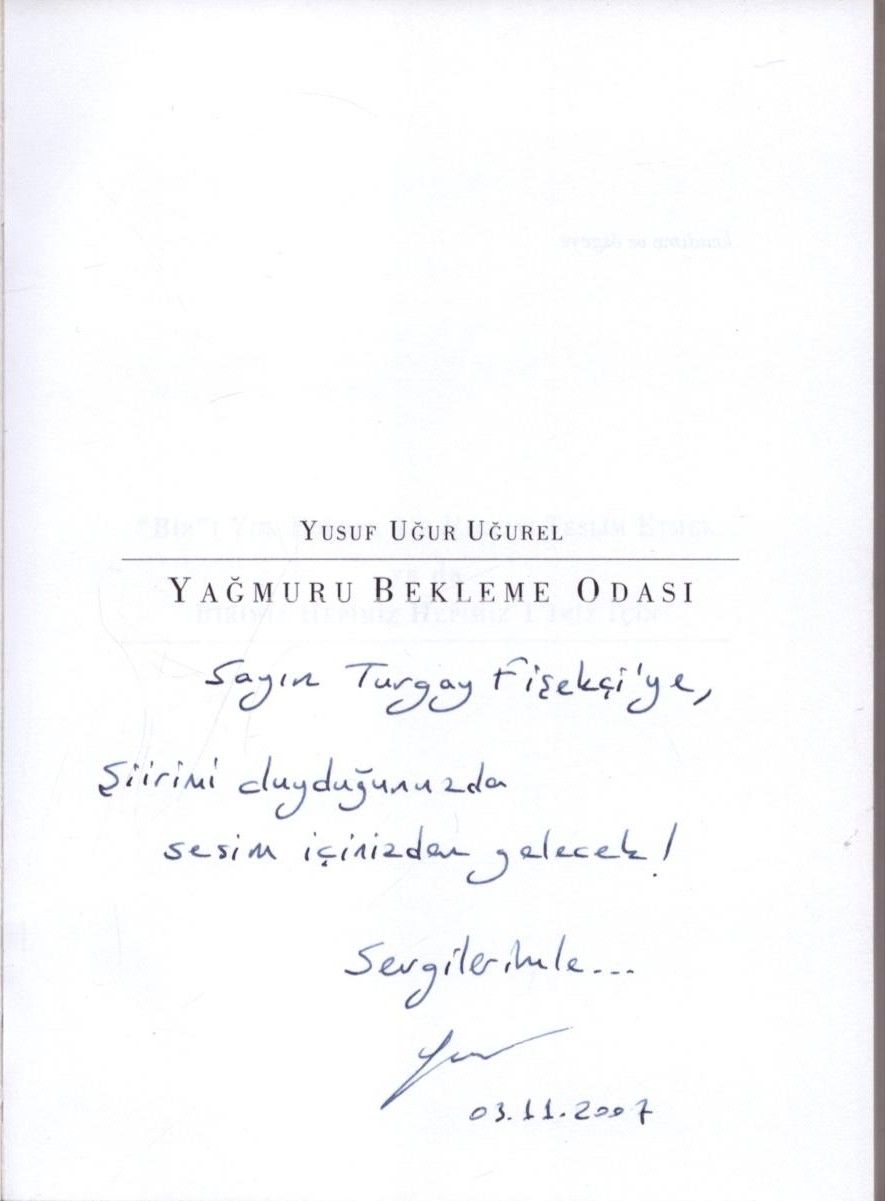 YUSUF UĞUR UĞUREL
YAĞMURU BEKLEME ODASI
Sayın Turgay Fişekçi'ye,
Şiirimi duyduğunuzda
sesim içinizden gelecek!
Sevgilerimle...
03.11.2007